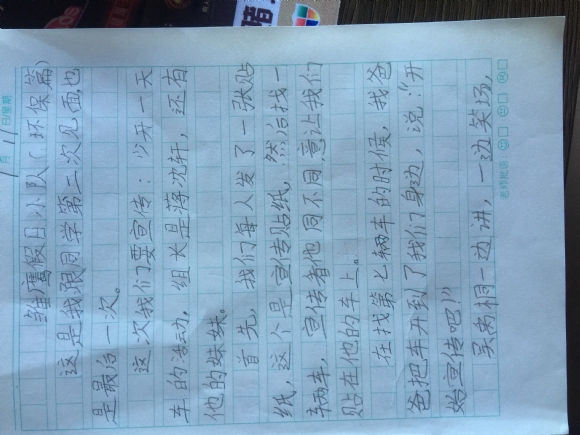 月 11 日/星期
雏鹰假日小队(环保篇)
这是我跟同学第二次见面,也
是最后一次。
这次我们要宣传:少开一天
车的活动,组长是蒋沈轩,还有
他的妹妹。
首先,我们每人发了一张贴
纸,这个是宣传贴纸,然后找一
辆车,宣传者他同不同意让我们
贴在他的车上。
在找第七辆车的时候,我爸
爸把车开到了我们身边,说:“开
始宣传吧!”
吴希桐一边讲,一边笑场,
老师批语